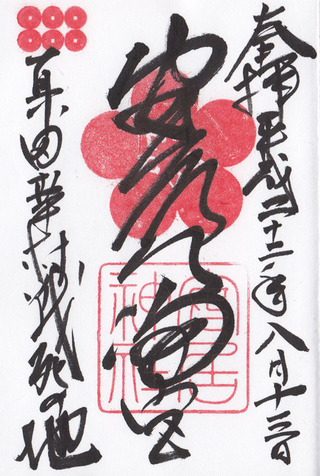 奉拝 平成二十二年八月十三日
安居天満宮
安居神社
真田幸村戦死の地